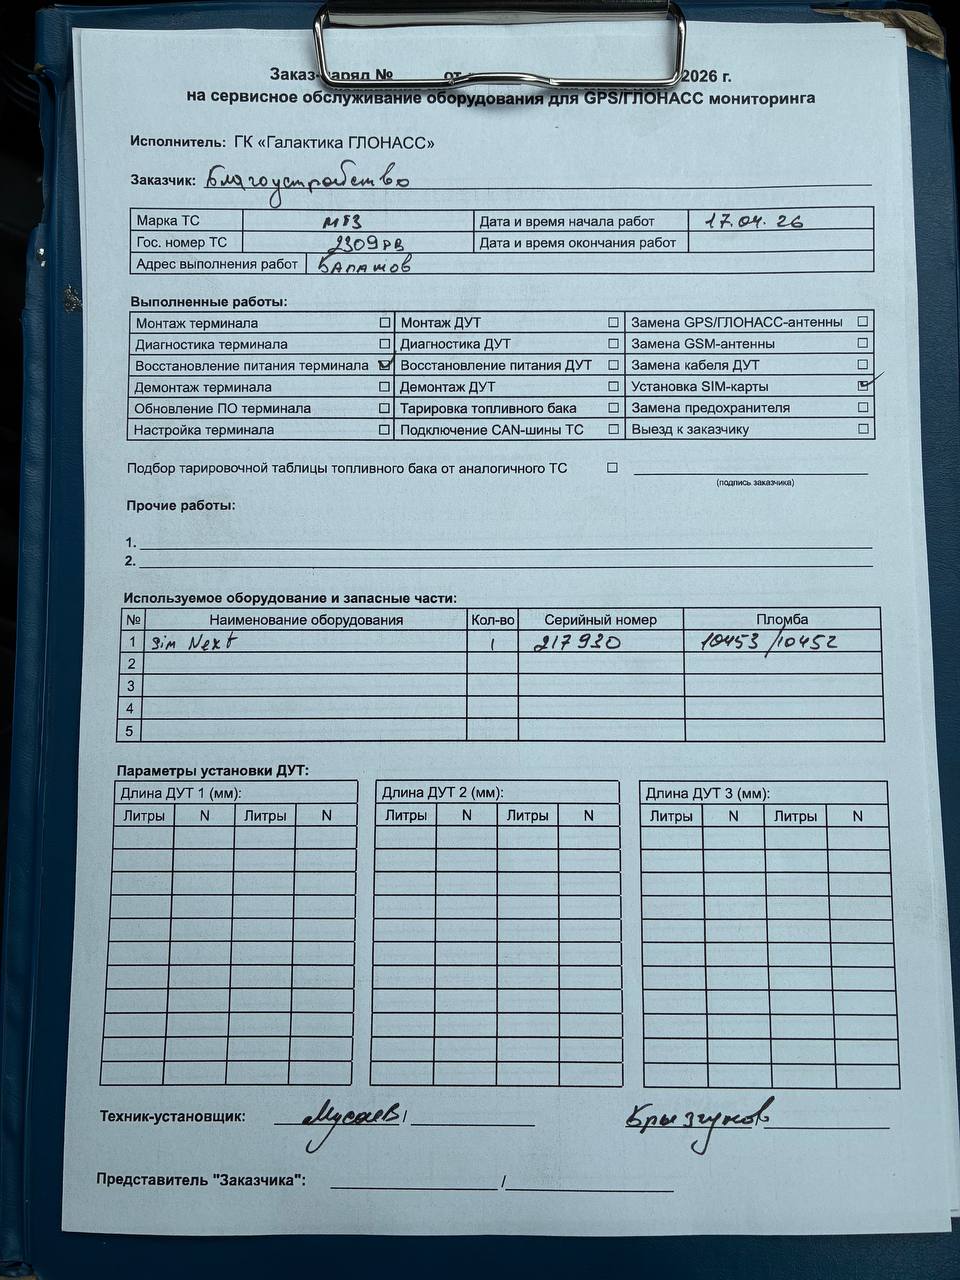 Заказ-наряд № от 2026 г.
на сервисное обслуживание оборудования для GPS/ГЛОНАСС мониторинга
Исполнитель: ГК «Галактика ГЛОНАСС»
Заказчик: Благоустройство
Марка ТС МТЗ Дата и время начала работ 17.04.26
Гос. номер ТС 2309РВ Дата и время окончания работ
Адрес выполнения работ
Выполненные работы:
Монтаж терминала ☐ Монтаж ДУТ ☐ Замена GPS/ГЛОНАСС-антенны ☐
Диагностика терминала ☐ Диагностика ДУТ ☐ Замена GSM-антенны ☐
Восстановление питания терминала ☑ Восстановление питания ДУТ ☐ Замена кабеля ДУТ ☐
Демонтаж терминала ☐ Демонтаж ДУТ ☐ Установка SIM-карты ☑
Обновление ПО терминала ☐ Тарировка топливного бака ☐ Замена предохранителя ☐
Настройка терминала ☐ Подключение CAN-шины ТС ☐ Выезд к заказчику ☐
Подбор тарировочной таблицы топливного бака от аналогичного ТС ☐
(подпись заказчика)
Прочие работы:
1.
2.
Используемое оборудование и запасные части:
№ Наименование оборудования Кол-во Серийный номер Пломба
1 Sim Next 1 217930 10453/10452
2
3
4
5
Параметры установки ДУТ:
Длина ДУТ 1 (мм): Длина ДУТ 2 (мм): Длина ДУТ 3 (мм):
Литры N Литры N Литры N Литры N Литры N Литры N
Техник-установщик: Мусаев / Брызгунов
Представитель "Заказчика": /